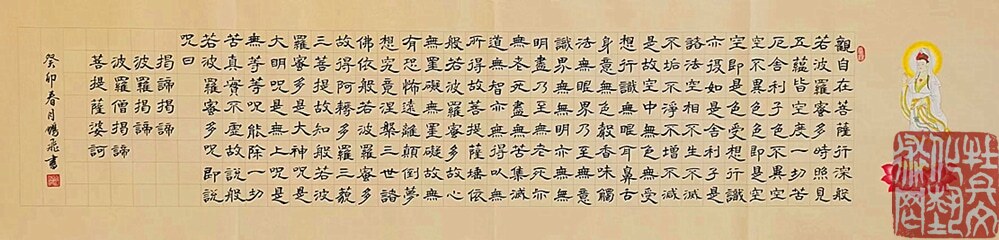 觀自在菩薩行深般
若波羅蜜多時照見
五蘊皆空度一切苦
厄舍利子色不異空
空不異色色即是空
空即是色受想行識
亦復如是舍利子是
諸法空相不生不滅
不垢不淨不增不減
是故空中無色無受
想行識無眼耳鼻舌
身意無色聲香味觸
法無眼界乃至無意
識界無無明亦無無
明盡乃至無老死亦
無老死盡無苦集滅
道無智亦無得以無
所得故菩提薩埵依
般若波羅蜜多故心
無罣礙無罣礙故無
有恐怖遠離顛倒夢
想究竟涅槃三世諸
佛依般若波羅蜜多
故得阿耨多羅三藐
三菩提故知般若波
羅蜜多是大神呪是
大明呪是無上呪是
無等等呪能除一切
苦真實不虛故說般
若波羅蜜多呪即說
呪曰
揭諦揭諦
波羅揭諦
波羅僧揭諦
菩提薩婆訶
癸卯春月鵬飛書